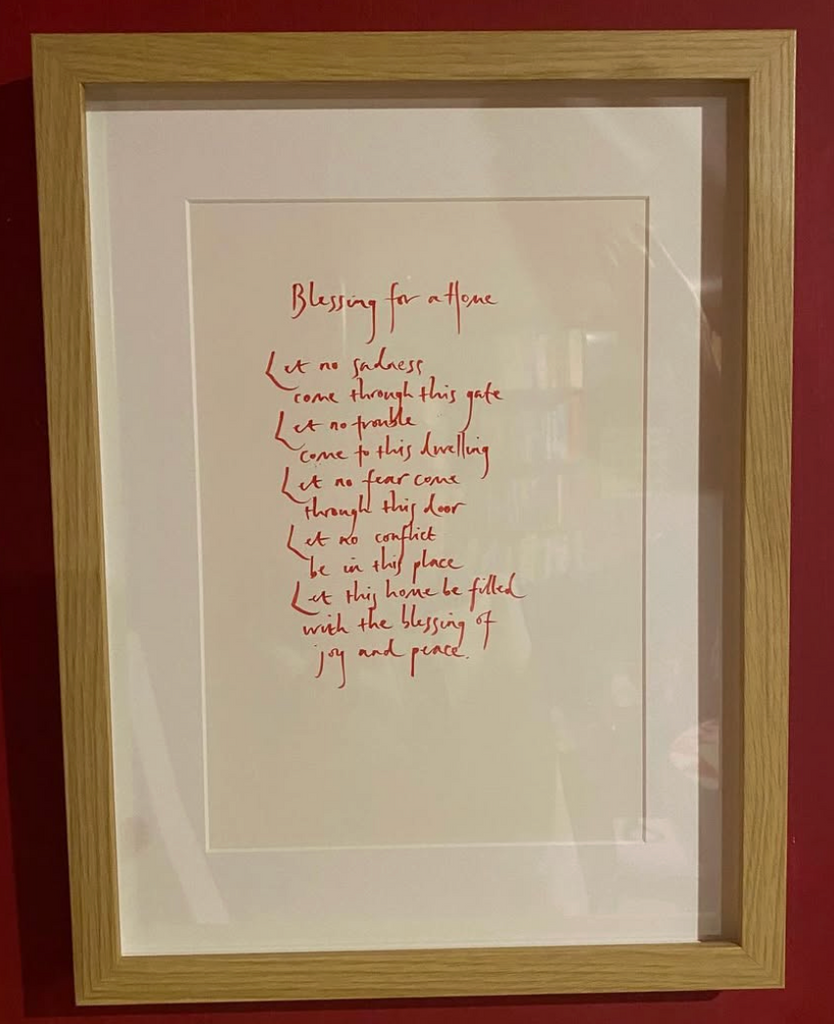 Blessing for a Home
Let no sadness
come through this gate
Let no trouble
come to this dwelling
Let no fear come
through this door
Let no conflict
be in this place
Let this home be filled
with the blessing of
joy and peace.